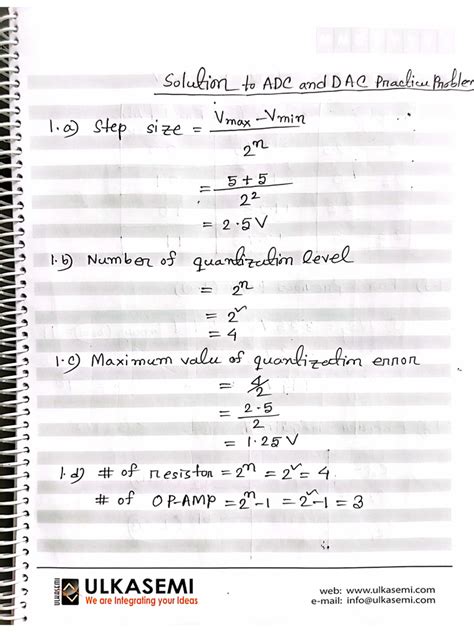 Solution to ADC and DAC Practice Problem
1.a) Step size = Vmax - Vmin / 2^n
= 5+5 / 2^2
= 2.5V
1.b) Number of quantization level
= 2^n
= 2^2
= 4
1.c) Maximum value of quantization error
= Δ/2
= 2.5 / 2
= 1.25 V
1.d) # of resistor = 2^n = 2^2 = 4
# of OP-AMP = 2^n-1 = 2^2-1 = 3
ULKASEMI
ULKASEMI
We are Integrating your Ideas
web: www.ulkasemi.com
e-mail: info@ulkasemi.com